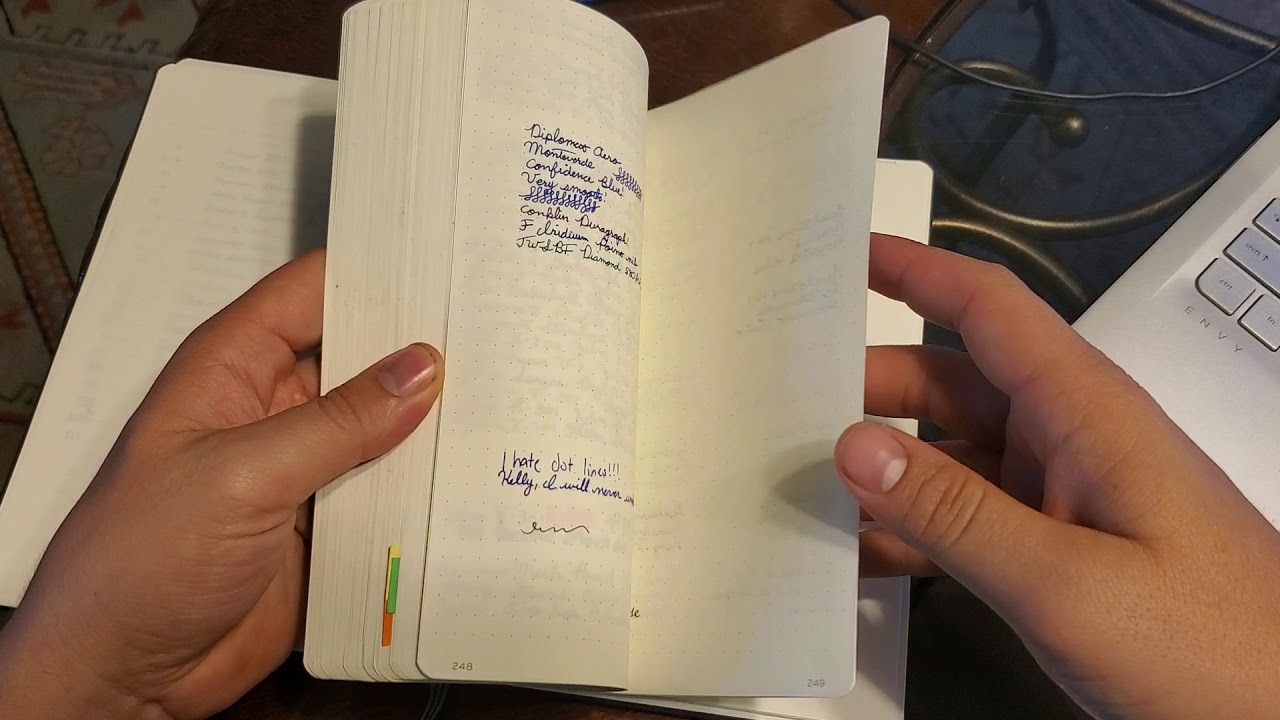 Diplomat Aero
Monteverde
Confidence Blue!
Very smooth!
Conklin Duragraph
F Iridium Point nib
TWSBI Diamond 580
I hate dot lines!!!
Kelly, I will never
248
249
shift ↑
ctrl
fn
ENVY